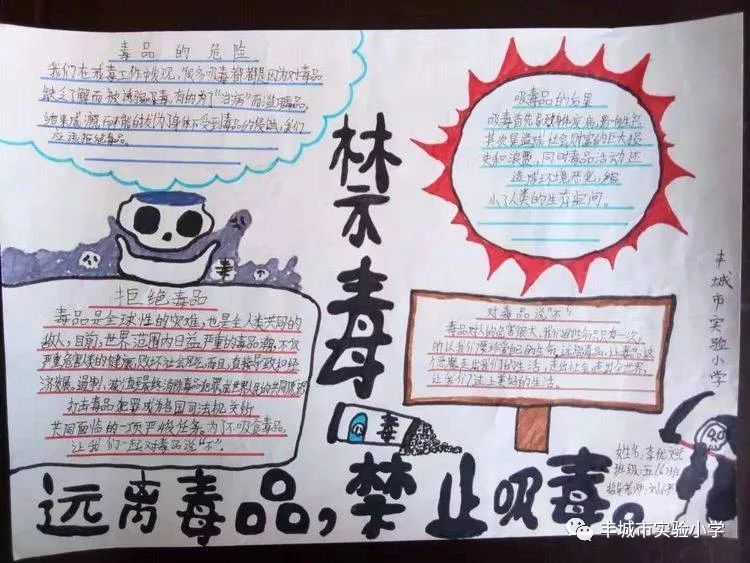 毒品的危险
我们在戒毒工作中发现,很多吸毒者都是因为对毒品
缺乏了解而被诱骗吸毒,有的为了"治病"而滥用毒品,
结果成瘾 为了身体不受到毒品的侵蚀,我们
应该拒绝毒品。
吸毒品的后果
吸毒首先导致身体疾病,影响生产,
其次是造成社会财富的巨大损
失和浪费,同时毒品活动还
造成环境恶化,缩
小了人类的生存空间。
禁毒
拒绝毒品
毒品是全球性的灾难,也是全人类共同的
敌人,目前,世界范围内日益严重的毒品 不仅
严重危害人类的健康,败坏社会风气,而且,直接导致和经
济发展。遏制、减少直至最终消除毒品犯罪,成世界人民的共同愿望
打击毒品犯罪成为各国司法机关所
共同面临的一项严峻任务。为了不吸食毒品,
让我们一起对毒品说"不"。
对毒品说"不"
毒品对人的危害很大,我们的生命只有一次,
所以我们要珍爱自己的生命,远离毒品,让毒品这
个恶魔走出我们的生活,走出社会,走出全世界,
让我们过上美好的生活。
毒
丰城市实验小学
姓名:李
班级:五(6)班
指导老师:刘
远离毒品,禁止吸毒。
丰城市实验小学